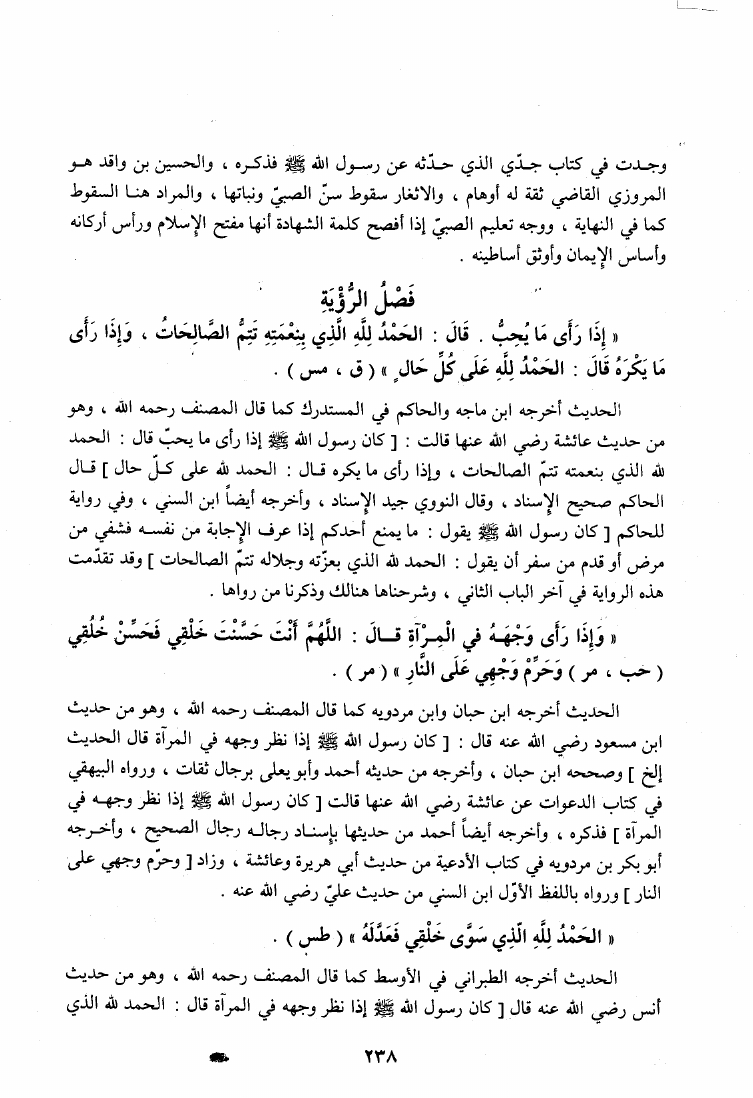 وجـدت في كتاب جـدّي الذي حـدّثه عن رسـول الله ﷺ فذكـره ، والحسين بن واقد هـو
المروزي القاضي ثقة له أوهام ، والاثغار سقوط سنّ الصبيّ ونباتها ، والمراد هنـا السقوط
كما في النهاية ، ووجه تعليم الصبيّ إذا أفصح كلمة الشهادة أنها مفتح الإسلام ورأس أركانه
وأساس الإيمان وأوثق أساطينه .
فَصْلُ الرُّؤْيَةِ
« إِذَا رَأَى مَا يُحِبُّ . قَالَ : الحَمْدُ لِلَّهِ الَّذِي بِنِعْمَتِهِ تَتِمُّ الصَّالِحَاتُ ، وَإِذَا رَأَى
مَا يَكْرَهُ قَالَ : الحَمْدُ لِلَّهِ عَلَى كُلِّ حَالٍ » ( ق ، مس ) .
الحديث أخرجه ابن ماجه والحاكم في المستدرك كما قال المصنف رحمه الله ، وهو
من حديث عائشة رضي الله عنها قالت : [ كان رسول الله ﷺ إذا رأى ما يحبّ قال : الحمد
لله الذي بنعمته تتمّ الصالحات ، وإذا رأى ما يكره قـال : الحمد لله على كـلّ حال ] قـال
الحاكم صحيح الإسناد ، وقال النووي جيد الإسناد ، وأخرجه أيضاً ابن السني ، وفي رواية
للحاكم [ كان رسول الله ﷺ يقول : ما يمنع أحدكم إذا عرف الإجابة من نفسـه فشفي من
مرض أو قدم من سفر أن يقول : الحمد لله الذي بعزّته وجلاله تتمّ الصالحات ] وقد تقدّمت
هذه الرواية في آخر الباب الثاني ، وشرحناها هنالك وذكرنا من رواها .
« وَإِذَا رَأَى وَجْهَـهُ في الْمِـرْآةِ قـالَ : اللَّهُمَّ أَنْتَ حَسَّنْتَ خَلْقِي فَحَسِّنْ خُلُقِي
( حب ، مر ) وَحَرِّمْ وَجْهِي عَلَى النَّارِ » ( مر ) .
الحديث أخرجه ابن حبان وابن مردويه كما قال المصنف رحمه الله ، وهو من حديث
ابن مسعود رضي الله عنه قال : [ كان رسول الله ﷺ إذا نظر وجهه في المرآة قال الحديث
إلخ ] وصححه ابن حبان ، وأخرجه من حديثه أحمد وأبو يعلى برجال ثقات ، ورواه البيهقي
في كتاب الدعوات عن عائشة رضي الله عنها قالت [ كان رسول الله ﷺ إذا نظر وجهـه في
المرآة ] فذكره ، وأخرجه أيضاً أحمد من حديثها بإسنـاد رجالـه رجال الصحيح ، وأخـرجه
أبو بكر بن مردويه في كتاب الأدعية من حديث أبي هريرة وعائشة ، وزاد [ وحرّم وجهي على
النار ] ورواه باللفظ الأوّل ابن السني من حديث عليّ رضي الله عنه .
« الحَمْدُ لِلَّهِ الَّذِي سَوَّى خَلْقِي فَعَدَلَهُ » ( طس ) .
الحديث أخرجه الطبراني في الأوسط كما قال المصنف رحمه الله ، وهو من حديث
أنس رضي الله عنه قال [ كان رسول الله ﷺ إذا نظر وجهه في المرآة قال : الحمد لله الذي
٢٣٨